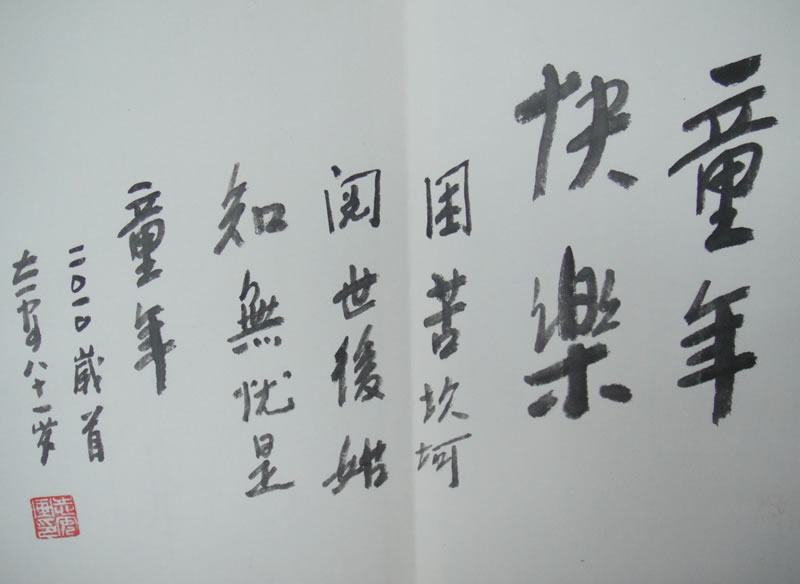 童年
快樂
困苦坎坷
阅世後始
知無忧是
童年
二〇一〇歲首
八十一岁